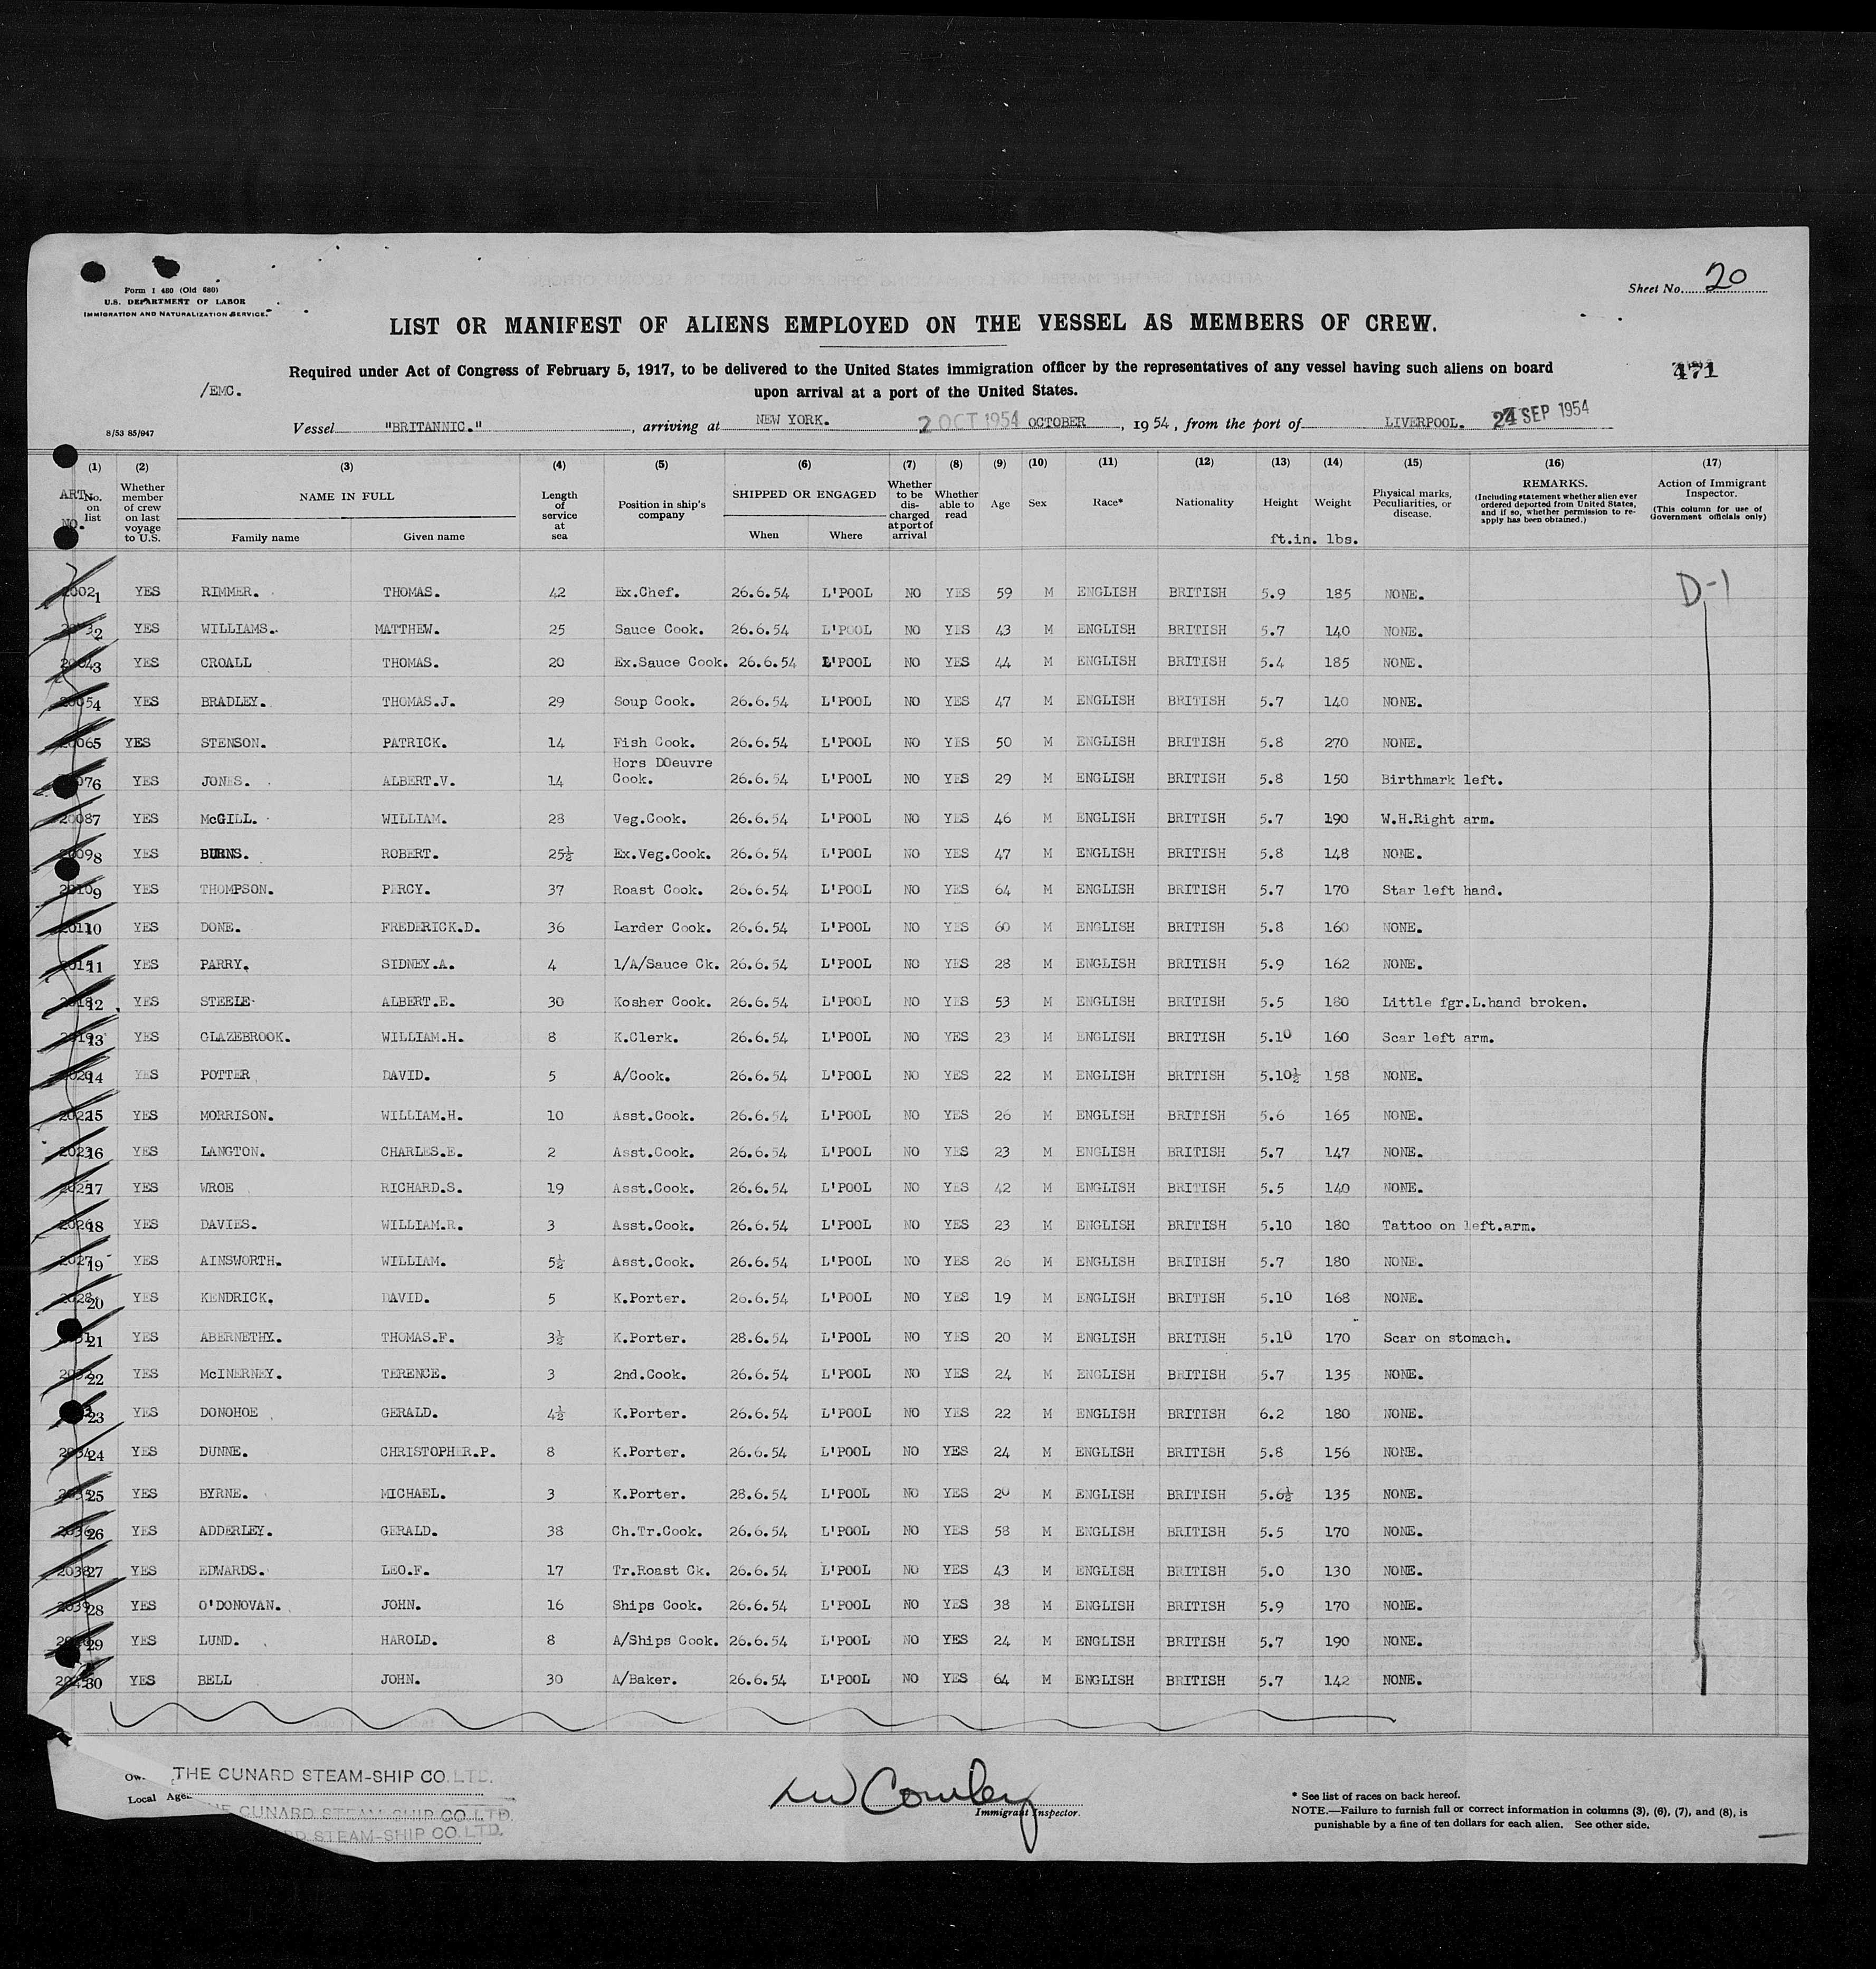 Form I 480 (Old 680)
U.S. DEPARTMENT OF LABOR
IMMIGRATION AND NATURALIZATION SERVICE.
Sheet No. 20
LIST OR MANIFEST OF ALIENS EMPLOYED ON THE VESSEL AS MEMBERS OF CREW.
Required under Act of Congress of February 5, 1917, to be delivered to the United States immigration officer by the representatives of any vessel having such aliens on board
upon arrival at a port of the United States.
471
/EMC.
8/53 85/947
Vessel "BRITANNIC." , arriving at NEW YORK. 2 OCT 1954 OCTOBER , 1954, from the port of LIVERPOOL. 24 SEP 1954
(1) (2) (3) (4) (5) (6) (7) (8) (9) (10) (11) (12) (13) (14) (15) (16) (17)
ART. NO. No. on list
Whether member of crew on last voyage to U.S.
NAME IN FULL
Family name Given name
Length of service at sea
Position in ship's company
SHIPPED OR ENGAGED
When Where
Whether to be discharged at port of arrival
Whether able to read
Age Sex Race* Nationality Height Weight
ft.in. lbs.
Physical marks, Peculiarities, or disease.
REMARKS.
(Including statement whether alien ever ordered deported from United States, and if so, whether permission to reapply has been obtained.)
Action of Immigrant Inspector.
(This column for use of Government officials only)
D-1
1 YES RIMMER. THOMAS. 42 Ex.Chef. 26.6.54 L'POOL NO YES 59 M ENGLISH BRITISH 5.9 185 NONE.
2 YES WILLIAMS. MATTHEW. 25 Sauce Cook. 26.6.54 L'POOL NO YES 43 M ENGLISH BRITISH 5.7 140 NONE.
3 YES CROALL THOMAS. 20 Ex.Sauce Cook. 26.6.54 L'POOL NO YES 44 M ENGLISH BRITISH 5.4 185 NONE.
4 YES BRADLEY. THOMAS.J. 29 Soup Cook. 26.6.54 L'POOL NO YES 47 M ENGLISH BRITISH 5.7 140 NONE.
5 YES STENSON. PATRICK. 14 Fish Cook. 26.6.54 L'POOL NO YES 50 M ENGLISH BRITISH 5.8 270 NONE.
6 YES JONES. ALBERT.V. 14 Hors DOeuvre Cook. 26.6.54 L'POOL NO YES 29 M ENGLISH BRITISH 5.8 150 Birthmark left.
7 YES McGILL. WILLIAM. 28 Veg.Cook. 26.6.54 L'POOL NO YES 46 M ENGLISH BRITISH 5.7 190 W.H.Right arm.
8 YES BURNS. ROBERT. 25½ Ex.Veg.Cook. 26.6.54 L'POOL NO YES 47 M ENGLISH BRITISH 5.8 148 NONE.
9 YES THOMPSON. PERCY. 37 Roast Cook. 26.6.54 L'POOL NO YES 64 M ENGLISH BRITISH 5.7 170 Star left hand.
10 YES DONE. FREDERICK.D. 36 Larder Cook. 26.6.54 L'POOL NO YES 60 M ENGLISH BRITISH 5.8 160 NONE.
11 YES PARRY. SIDNEY.A. 4 1/A/Sauce Ck. 26.6.54 L'POOL NO YES 28 M ENGLISH BRITISH 5.9 162 NONE.
12 YES STEELE ALBERT.E. 30 Kosher Cook. 26.6.54 L'POOL NO YES 53 M ENGLISH BRITISH 5.5 180 Little fgr.L.hand broken.
13 YES GLAZEBROOK. WILLIAM.H. 8 K.Clerk. 26.6.54 L'POOL NO YES 23 M ENGLISH BRITISH 5.10 160 Scar left arm.
14 YES POTTER DAVID. 5 A/Cook. 26.6.54 L'POOL NO YES 22 M ENGLISH BRITISH 5.10½ 158 NONE.
15 YES MORRISON. WILLIAM.H. 10 Asst.Cook. 26.6.54 L'POOL NO YES 26 M ENGLISH BRITISH 5.6 165 NONE.
16 YES LANGTON. CHARLES.E. 2 Asst.Cook. 26.6.54 L'POOL NO YES 23 M ENGLISH BRITISH 5.7 147 NONE.
17 YES WROE RICHARD.S. 19 Asst.Cook. 26.6.54 L'POOL NO YES 42 M ENGLISH BRITISH 5.5 140 NONE.
18 YES DAVIES. WILLIAM.R. 3 Asst.Cook. 26.6.54 L'POOL NO YES 23 M ENGLISH BRITISH 5.10 180 Tattoo on left.arm.
19 YES AINSWORTH. WILLIAM. 5½ Asst.Cook. 26.6.54 L'POOL NO YES 26 M ENGLISH BRITISH 5.7 180 NONE.
20 YES KENDRICK. DAVID. 5 K.Porter. 26.6.54 L'POOL NO YES 19 M ENGLISH BRITISH 5.10 168 NONE.
21 YES ABERNETHY. THOMAS.F. 3½ K.Porter. 28.6.54 L'POOL NO YES 20 M ENGLISH BRITISH 5.10 170 Scar on stomach.
22 YES McINERNEY. TERENCE. 3 2nd.Cook. 26.6.54 L'POOL NO YES 24 M ENGLISH BRITISH 5.7 135 NONE.
23 YES DONOHOE GERALD. 4½ K.Porter. 26.6.54 L'POOL NO YES 22 M ENGLISH BRITISH 6.2 180 NONE.
24 YES DUNNE. CHRISTOPHER.P. 8 K.Porter. 26.6.54 L'POOL NO YES 24 M ENGLISH BRITISH 5.8 156 NONE.
25 YES BYRNE. MICHAEL. 3 K.Porter. 28.6.54 L'POOL NO YES 20 M ENGLISH BRITISH 5.6½ 135 NONE.
26 YES ADDERLEY. GERALD. 38 Ch.Tr.Cook. 26.6.54 L'POOL NO YES 58 M ENGLISH BRITISH 5.5 170 NONE.
27 YES EDWARDS. LEO.F. 17 Tr.Roast Ck. 26.6.54 L'POOL NO YES 43 M ENGLISH BRITISH 5.0 130 NONE.
28 YES O'DONOVAN. JOHN. 16 Ships Cook. 26.6.54 L'POOL NO YES 38 M ENGLISH BRITISH 5.9 170 NONE.
29 YES LUND. HAROLD. 8 A/Ships Cook. 26.6.54 L'POOL NO YES 24 M ENGLISH BRITISH 5.7 190 NONE.
30 YES BELL JOHN. 30 A/Baker. 26.6.54 L'POOL NO YES 64 M ENGLISH BRITISH 5.7 142 NONE.
THE CUNARD STEAM-SHIP CO. LTD.
Local
CUNARD STEAM-SHIP CO. LTD.
STEAM-SHIP CO. LTD.
Cowley
Immigrant Inspector.
* See list of races on back hereof.
NOTE.—Failure to furnish full or correct information in columns (3), (6), (7), and (8), is
punishable by a fine of ten dollars for each alien. See other side.